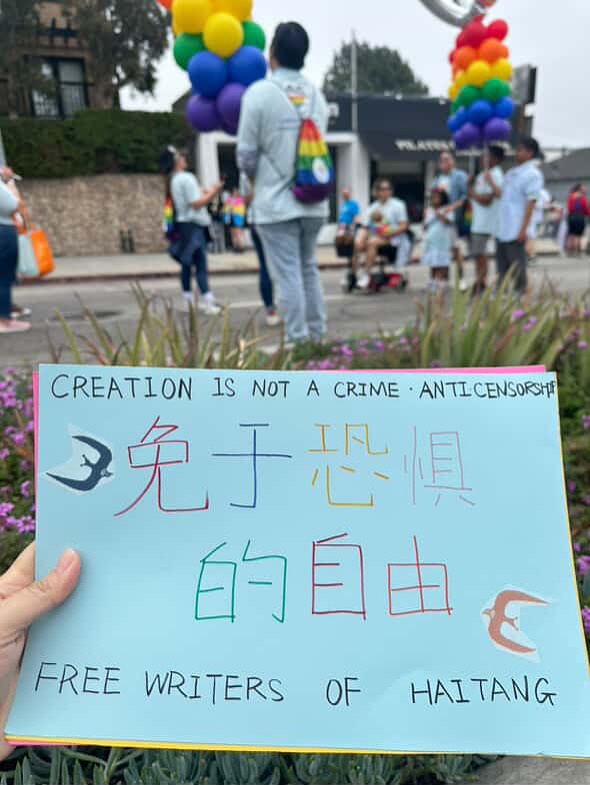 PILATES
CREATION IS NOT A CRIME · ANTI-CENSORSHIP
免于恐惧
的自由
FREE WRITERS OF HAITANG